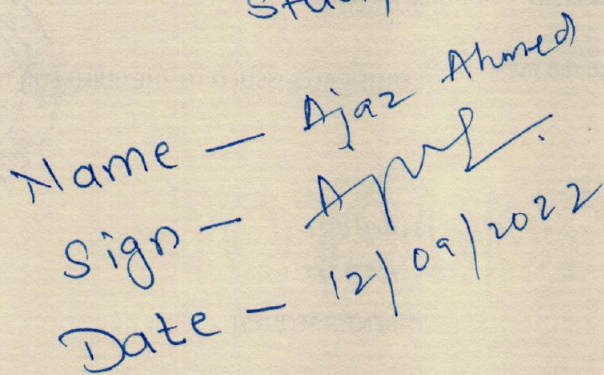 Name - Ajaz Ahmed
Sign -
Date - 12/09/2022